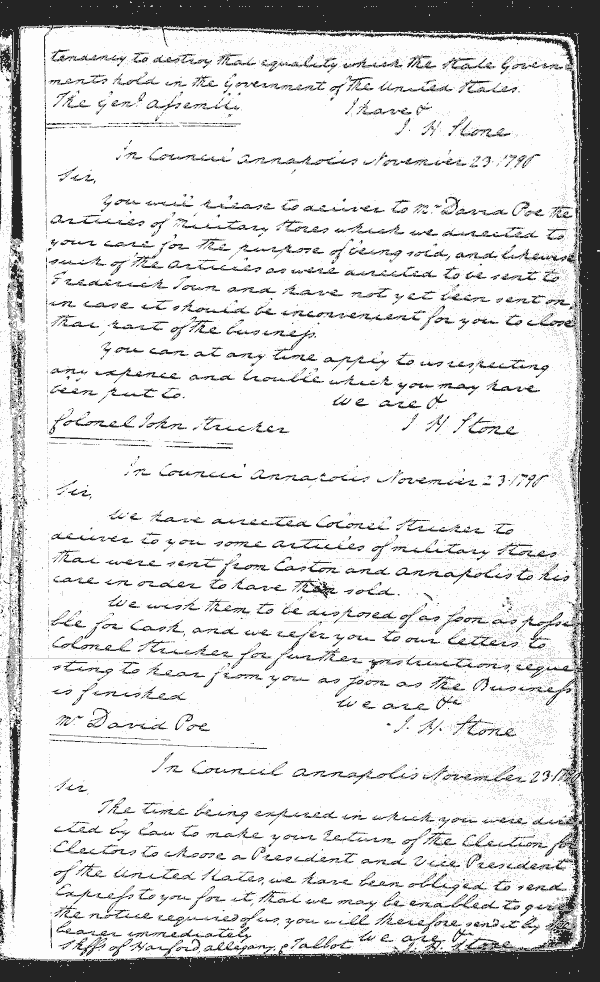 tendency to destroy that equality which the State Govern
ments hold in the Government of the United States.
The Genl Assembly I have &
J. H. Stone
In Council Annapolis November 23 1796
Sir,
You will please to deliver to Mr David Poe the
Articles of Military Stores which we directed to
your care for the purpose of being sold, and likewise
such of the Articles as were directed to be sent to
Frederick Town and have not yet been sent on,
in case it should be inconvenient for you to close
that part of the business.
You can at any time apply to us respecting
any expence and trouble which you may have
been put to. We are &
Colonel John Stricker J H Stone
In Council Annapolis November 23 1796
Sir,
We have directed Colonel Stricker to
deliver to you some articles of military Stores
that were sent from Easton and Annapolis to his
care in order to have them sold.
We wish them to be disposed of as soon as possi
ble for Cash, and we refer you to our letters to
Colonel Stricker for further instructions, reque
sting to hear from you as soon as the Business
is finished We are &c
Mr David Poe J. H. Stone
In Council Annapolis November 23 1796
Sir
The time being expired in which you were dire
cted by Law to make your Return of the Election for
Electors to choose a President and Vice President
of the United States, we have been obliged to send
Express to you for it, that we may be enabled to give
the notice required of us, you will therefore send it by the
bearer immediately
Shffs. of Harford, Allegany, & Talbot We are & J. H. Stone